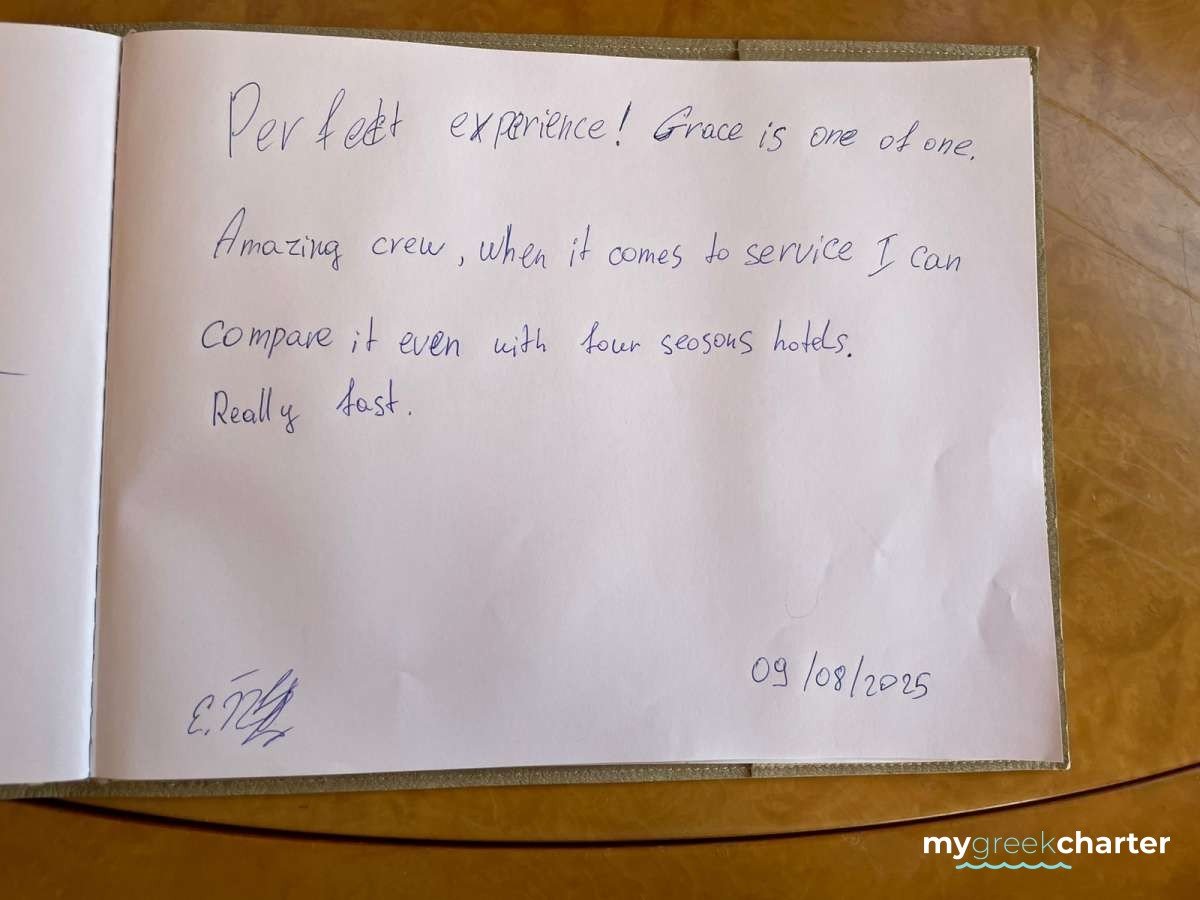 Perfect experience! Grace is one of one.
Amazing crew, when it comes to service I can
compare it even with four seosons hotels.
Really fast.
09/08/2025
mygreekcharter